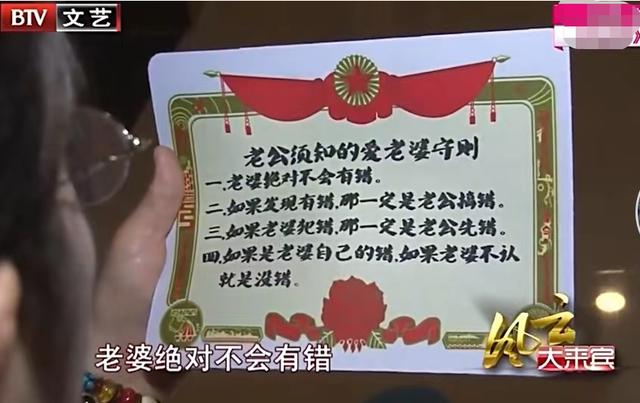 BTV 文艺
老公须知的爱老婆守则
一.老婆绝对不会有错。
二.如果发现有错,那一定是老公搞错。
三.如果老婆犯错,那一定是老公先错。
四.如果是老婆自己的错,如果老婆不认
就是没错。
风云
大来宾
老婆绝对不会有错